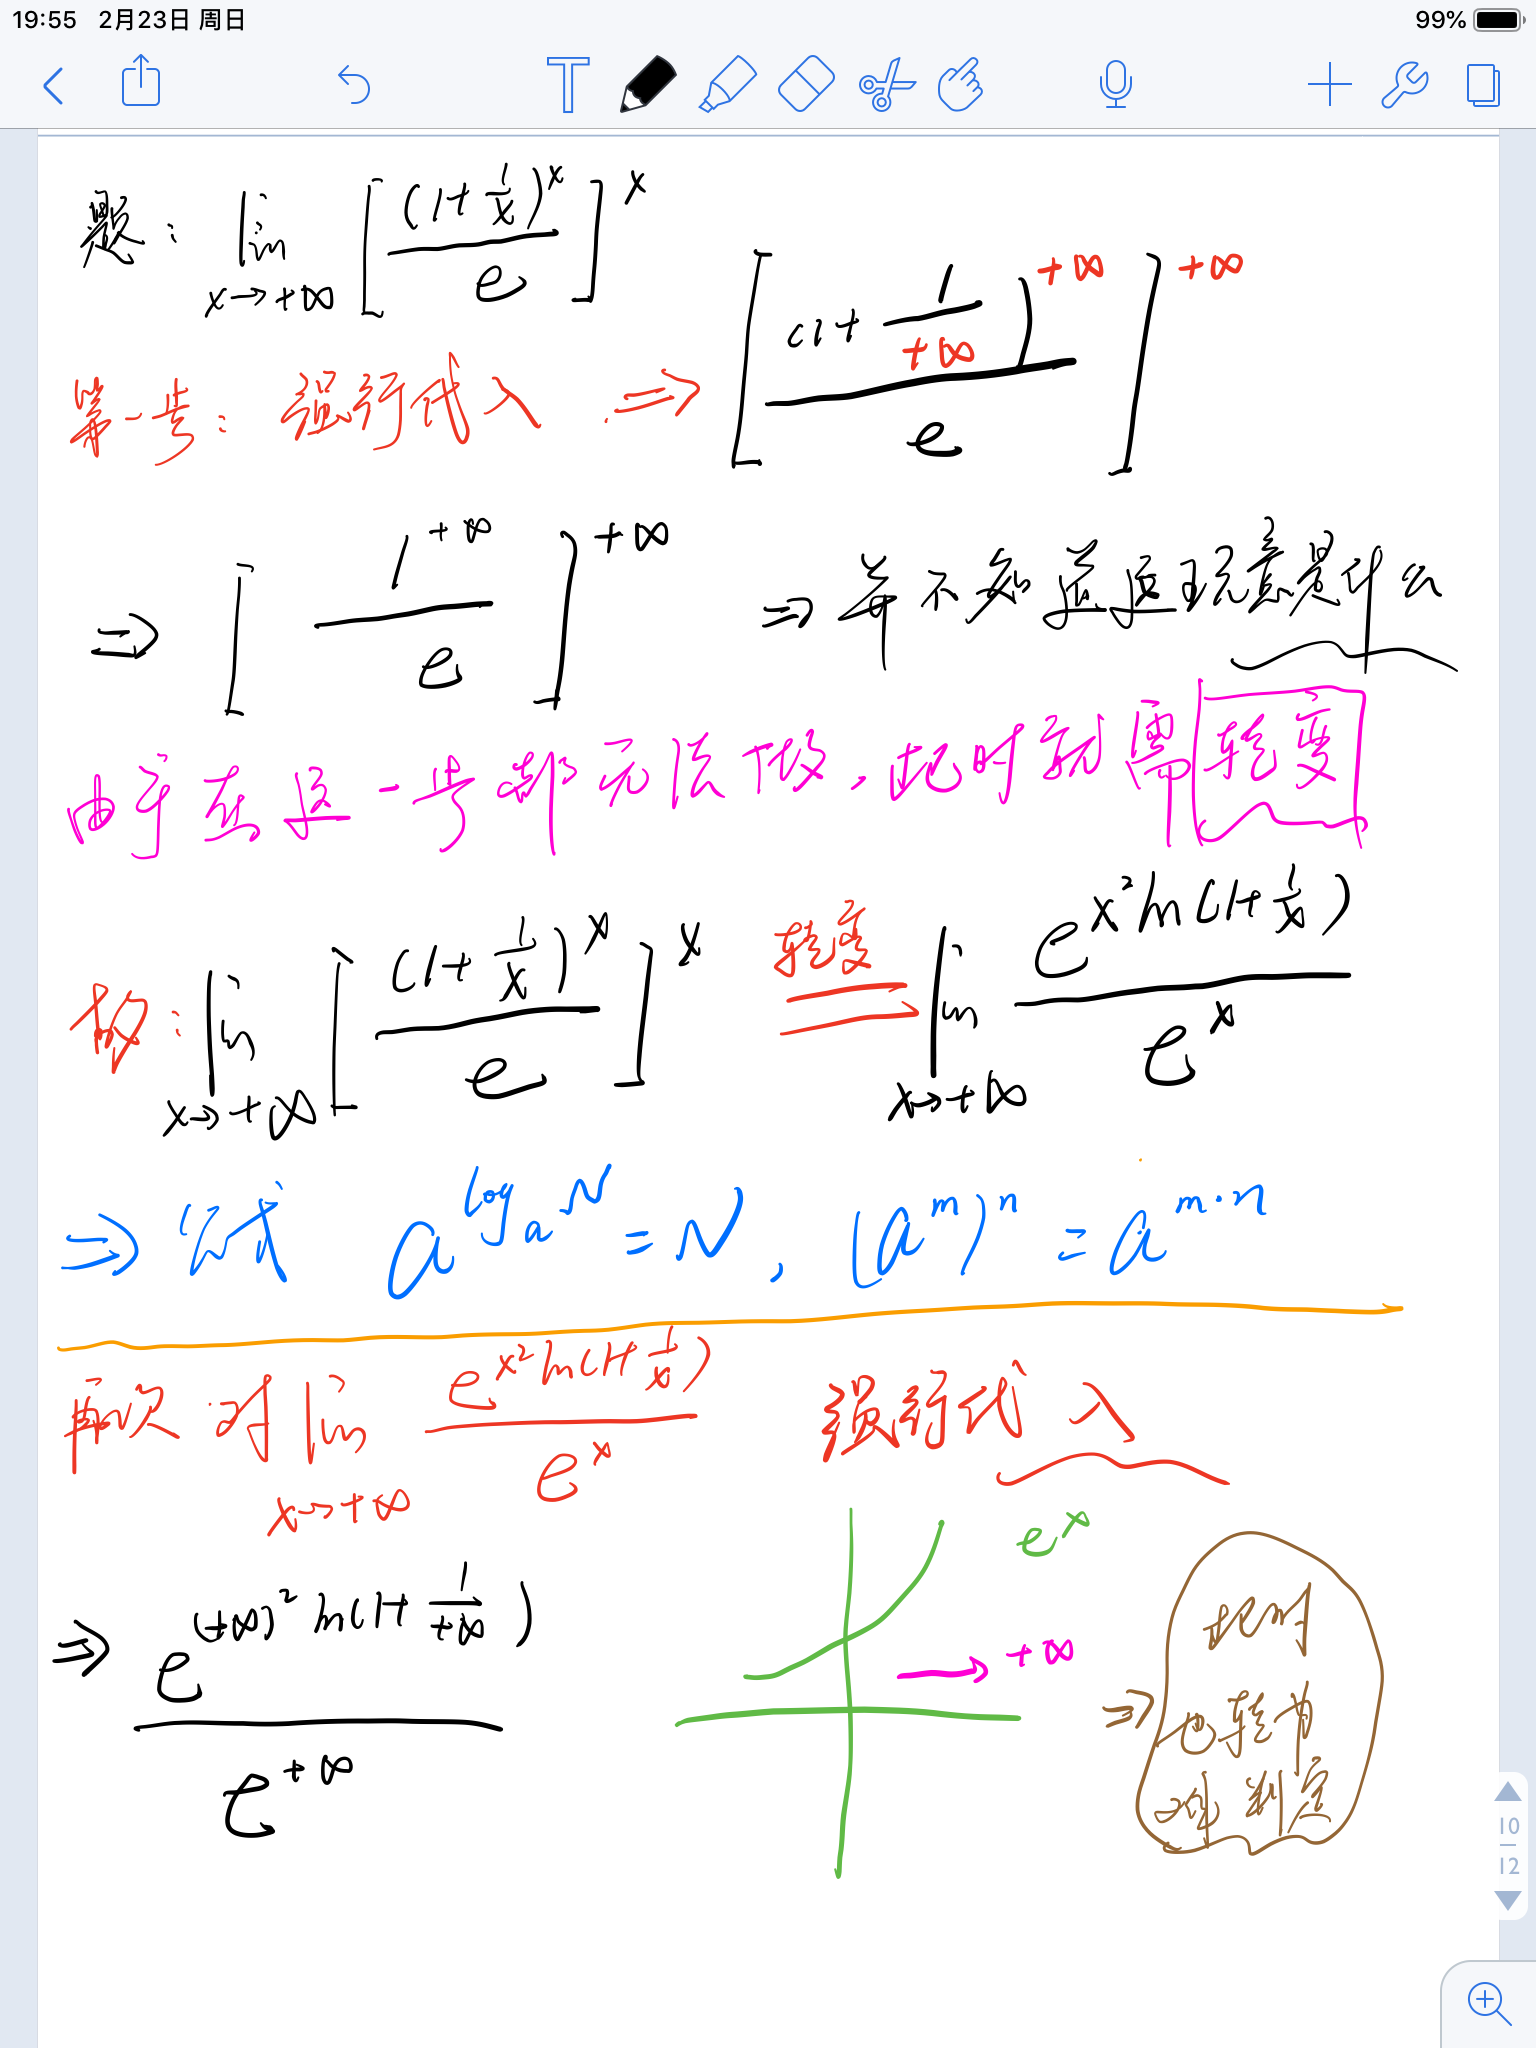 19:55 2月23日 周日 99%
题: lim x→+∞ [(1+1/x)^x / e]^x
第一步: 强行代入 ⇒ [(1+1/+∞)^+∞ / e]^+∞
⇒ [1^+∞ / e]^+∞ ⇒ 并不知道这玩意是什么
由于在这一步都无法做,此时就需转变
故: lim x→+∞ [(1+1/x)^x / e]^x 转变 ⇒ lim x→+∞ e^(x² ln(1+1/x)) / e^x
⇒ 公式 a^(log_a N) = N, (a^m)^n = a^(m·n)
再次对 lim x→+∞ e^(x² ln(1+1/x)) / e^x 强行代入
⇒ e^((+∞)² ln(1+1/+∞)) / e^+∞
e^x
→ +∞
⇒ 此时
也较为
难判定
10
12